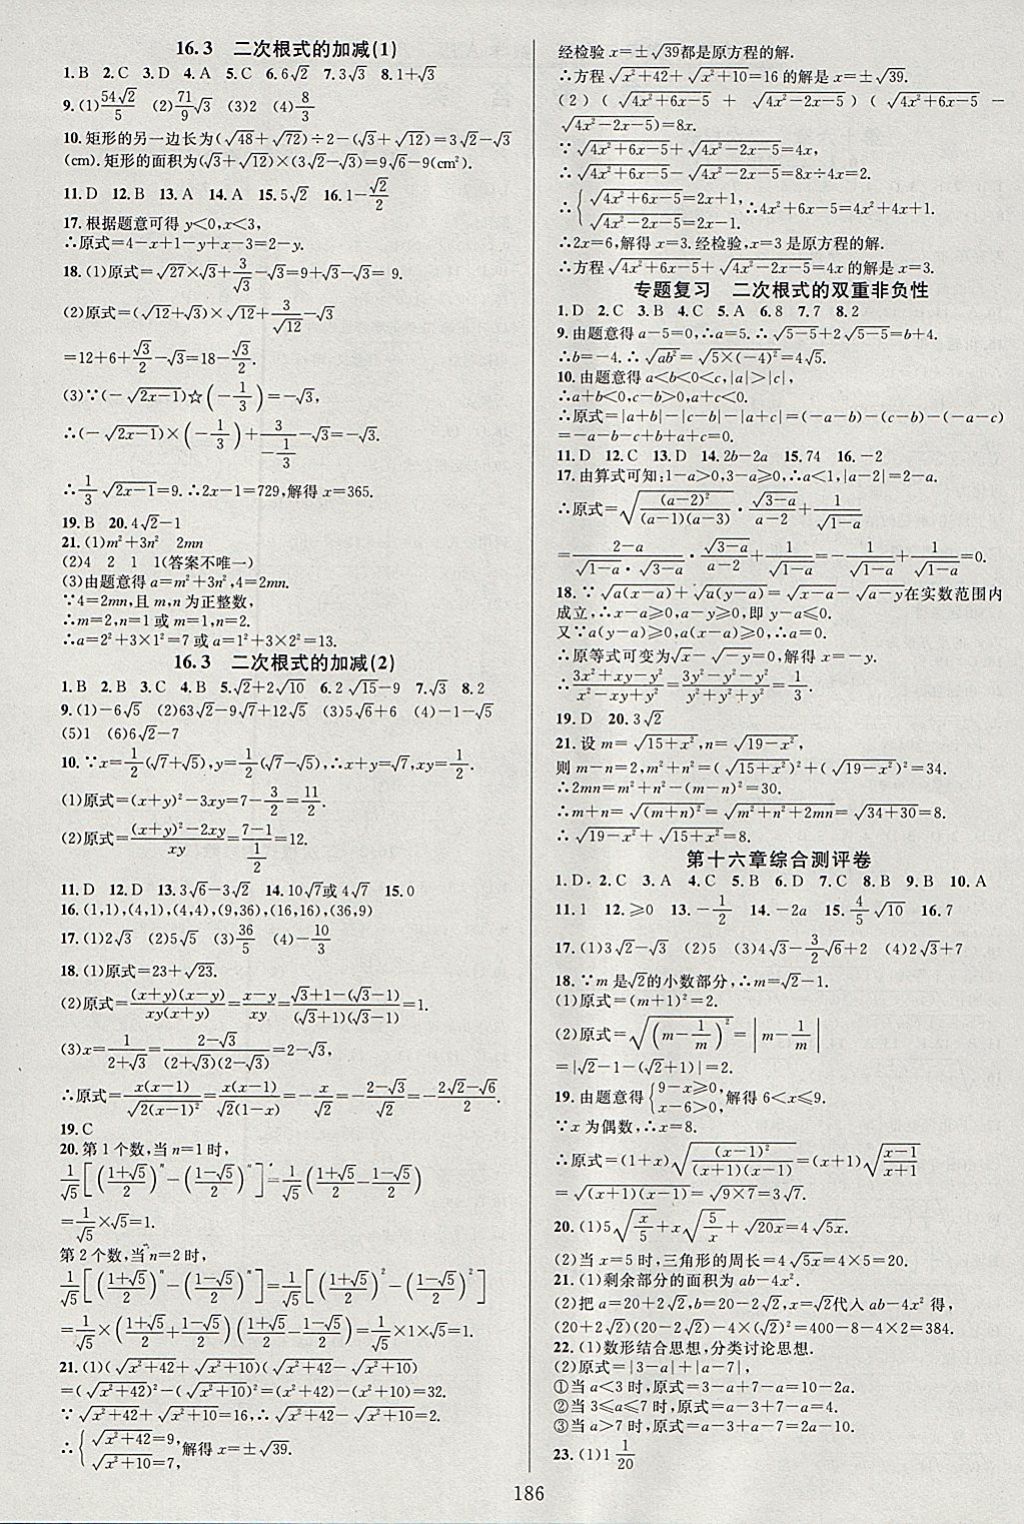 16.3 二次根式的加减(1)
1.B 2.C 3.D 4.A 5.C 6.6√2 7.3√3 8.1+√3
9.(1)54√2/5 (2)71/9√3 (3)2 (4)8/3
10.矩形的另一边长为(√48+√72)÷2-(√3+√12)=3√2-√3
(cm).矩形的面积为(√3+√12)×(3√2-√3)=9√6-9(cm²).
11.D 12.B 13.A 14.A 15.5√2 16.1-√2/2
17.根据题意可得 y<0,x<3,
∴原式=4-x+1-y+x-3=2-y.
18.(1)原式=√27×√3+3/√3-√3=9+√3-√3=9.
(2)原式=(√12+√3)×√12+3/√12-√3
=12+6+√3/2-√3=18-√3/2.
(3)∵(-√(2x-1))☆(-1/3)=-√3,
∴(-√(2x-1))×(-1/3)+3/(-1/3)-√3=-√3.
∴1/3√(2x-1)=9.∴2x-1=729,解得 x=365.
19.B 20.4√2-1
21.(1)m²+3n² 2mn
(2)4 2 1 1(答案不唯一)
(3)由题意得 a=m²+3n²,4=2mn.
∵4=2mn,且 m,n 为正整数,
∴m=2,n=1 或 m=1,n=2.
∴a=2²+3×1²=7 或 a=1²+3×2²=13.
16.3 二次根式的加减(2)
1.B 2.B 3.C 4.B 5.√2+2√10 6.2√15-9 7.√3 8.2
9.(1)-6√5 (2)63√2-9√7+12√5 (3)5√6+6 (4)-1-√5
(5)1 (6)6√2-7
10.∵x=1/2(√7+√5),y=1/2(√7-√5),∴x+y=√7,xy=1/2.
(1)原式=(x+y)²-3xy=7-3/2=11/2.
(2)原式=((x+y)²-2xy)/xy=(7-1)/(1/2)=12.
11.D 12.D 13.3√6-3√2 14.10√7或4√7 15.0
16.(1,1),(4,1),(4,4),(9,36),(16,16),(36,9)
17.(1)2√3 (2)5√5 (3)36/5 (4)-10/3
18.(1)原式=23+√23.
(2)原式=(x+y)(x-y)/(xy(x+y))=(x-y)/xy=(√3+1-(√3-1))/((√3+1)(√3-1))=1.
(3)x=1/(2+√3)=(2-√3)/((2+√3)(2-√3))=2-√3,
∴原式=x(x-1)/√(2(x-1)²)=x(x-1)/(√2(1-x))=-x/√2=-(2-√3)/√2=-(2√2-√6)/2.
19.C
20.第1个数,当 n=1 时,
1/√5[((1+√5)/2)ⁿ-((1-√5)/2)ⁿ]=1/√5((1+√5)/2-(1-√5)/2)
=1/√5×√5=1.
第2个数,当 n=2 时,
1/√5[((1+√5)/2)ⁿ-((1-√5)/2)ⁿ]=1/√5[((1+√5)/2)²-((1-√5)/2)²]
=1/√5×((1+√5)/2+(1-√5)/2)((1+√5)/2-(1-√5)/2)=1/√5×1×√5=1.
21.(1)(√(x²+42)+√(x²+10))(√(x²+42)-√(x²+10))
=(√(x²+42))²-(√(x²+10))²=(x²+42)-(x²+10)=32.
∵√(x²+42)+√(x²+10)=16,∴√(x²+42)-√(x²+10)=2.
∴{√(x²+42)=9, √(x²+10)=7, 解得 x=±√39.
经检验 x=±√39都是原方程的解.
∴方程√(x²+42)+√(x²+10)=16 的解是 x=±√39.
(2)(√(4x²+6x-5)+√(4x²-2x-5))(√(4x²+6x-5)-
√(4x²-2x-5))=8x.
∵√(4x²+6x-5)+√(4x²-2x-5)=4x,
∴√(4x²+6x-5)-√(4x²-2x-5)=8x÷4x=2.
∴{√(4x²+6x-5)=2x+1, √(4x²-2x-5)=2x-1. ∴4x²+6x-5=4x²+4x+1.
∴2x=6,解得 x=3.经检验,x=3 是原方程的解.
∴方程√(4x²+6x-5)+√(4x²-2x-5)=4x 的解是 x=3.
专题复习 二次根式的双重非负性
1.D 2.C 3.B 4.C 5.A 6.8 7.7 8.2
9.由题意得 a-5=0,∴a=5.∴√(5-5)+2√(5-5)=b+4.
∴b=-4.∴√(ab²)=√(5×(-4)²)=4√5.
10.由题意得 a<b<0<c,|a|>|c|,
∴a+b<0,c-b>0,a+c<0.
∴原式=|a+b|-|c-b|-|a+c|=(-a-b)-(c-b)-(-a-c)
=-a-b-c+b+a+c=0.
11.D 12.C 13.D 14.2b-2a 15.74 16.-2
17.由算式可知:1-a>0,3-a≥0,∴a<1,|a-2|=2-a.
∴原式=√((a-2)²/((a-1)(a-3)))·√(3-a)/(a-2)+1/√(1-a)
=(2-a)/(√(1-a)·√(3-a))·√(3-a)/(a-2)+1/√(1-a)=-1/√(1-a)+1/√(1-a)=0.
18.∵√(a(x-a))+√(a(y-a))=√(x-a)-√(a-y)在实数范围内
成立,∴x-a≥0,a-y≥0,即 y-a≤0.
又∵a(y-a)≥0,a(x-a)≥0,∴a=0.
∴原等式可变为√x-√(-y)=0,解得 x=-y.
∴(3x²+xy-y²)/(x²-xy+y²)=(3y²-y²-y²)/(y²+y²+y²)=1/3.
19.D 20.3√2
21.设 m=√(15+x²),n=√(19-x²),
则 m-n=2,m²+n²=(√(15+x²))²+(√(19-x²))²=34.
∴2mn=m²+n²-(m-n)²=30.
∴m+n=√((m+n)²)=√(m²+n²+2mn)=√(34+30)=8.
∴√(19-x²)+√(15+x²)=8.
第十六章综合测评卷
1.D 2.C 3.A 4.C 5.B 6.D 7.C 8.B 9.B 10.A
11.1 12.≥0 13.-1/2 14.-2a 15.4/5√10 16.7
17.(1)3√2-√3 (2)5 (3)4√3-3/2√6+2 (4)2√3+7
18.∵m 是√2的小数部分,∴m=√2-1.
(1)原式=(m+1)²=2.
(2)原式=√((m-1/m)²)=|m-1/m|
=|√2-1-(√2+1)|=2.
19.由题意得{9-x≥0, x-6>0, 解得 6<x≤9.
∵x 为偶数,∴x=8.
∴原式=(1+x)√((x-1)²/((x+1)(x-1)))=(x+1)√((x-1)/(x+1))
=√((x+1)(x-1))=√(9×7)=3√7.
20.(1)5√(x/5)+x√(5/x)+√(20x)=4√(5x).
(2)当 x=5 时,三角形的周长=4√(5x)=4×5=20.
21.(1)剩余部分的面积为 ab-4x².
(2)把 a=20+2√2,b=20-2√2,x=√2代入 ab-4x² 得,
(20+2√2)(20-2√2)-4×(√2)²=400-8-4×2=384.
22.(1)数形结合思想,分类讨论思想.
(2)原式=|3-a|+|a-7|,
①当 a<3 时,原式=3-a+7-a=10-2a.
②当 3≤a≤7 时,原式=a-3+7-a=4.
③当 a>7 时,原式=a-3+a-7=2a-10.
23.(1)1 1/20
186